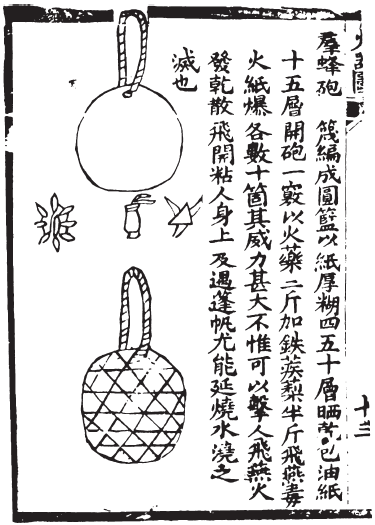 羣蜂砲　篾編成圓籃以紙厚糊四五十層晒乾包油紙
十五層開砲一竅以火藥二斤加鉄蒺梨半斤飛燕毒
火紙爆各數十箇其威力甚大不惟可以擊人飛燕火
發乾散飛開粘人身上及遇蓬帆尤能延燒水澆之
滅也